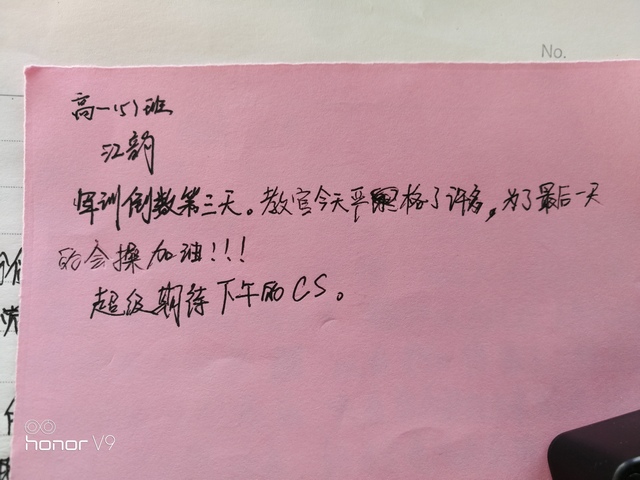 No.
高一(5)班
江韵
军训倒数第三天。教官今天严格了许多，为了最后一天
的会操加油!!!
超级期待下午的CS。
honor V9